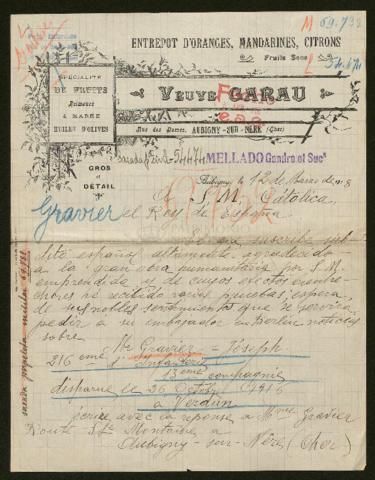 M 69.732
ENTREPOT D'ORANGES, MANDARINES, CITRONS
Fruits Secs
SPÉCIALITÉ
DE FRUITS
Primeurs
& MARÉE
HUILES D'OLIVES
VEUVE GARAU
Rue des Dames, AUBIGNY-SUR-NÈRE (Cher)
GROS
et
DÉTAIL
MELLADO Gandra el Suc
Aubigny, le 12 Marzo de
a S. M. Catolica,
Gravier el Rey de España
El que suscribe sub-
dito español altamente agradecido
a la gran obra humanitaria por S. M.
emprendida y de cuyos efectos en
he recibido varias pruebas, espera
de sus nobles sentimientos que se servira
pedir a su embajador en Berlin noticias
sobre
Gravier = Joseph
216 eme Infanterie
13 eme compagnie
disparue le 26 Octobre 1916
a Verdun
ecrire avec la reponse a Mme Gravier
Route Ste Montaine a
Aubigny-sur-Nère (Cher)